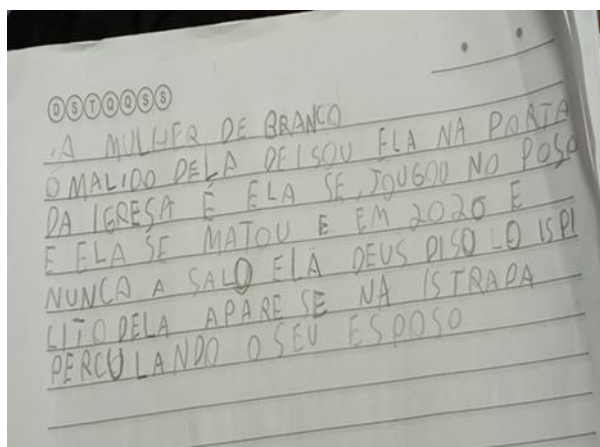 DSTQQSS
A MULHER DE BRANCO
O MALIDO DELA DEISOU ELA NA PORTA
DA IGRESA É ELA SE JOUGOU NO POSO
E ELA SE MATOU E EM 2020 E
NUNCA A SALO ELA DEUS DISO LO ISPI
LITO DELA APARE SE NA ISTRADA
PERCULANDO O SEU ESPOSO